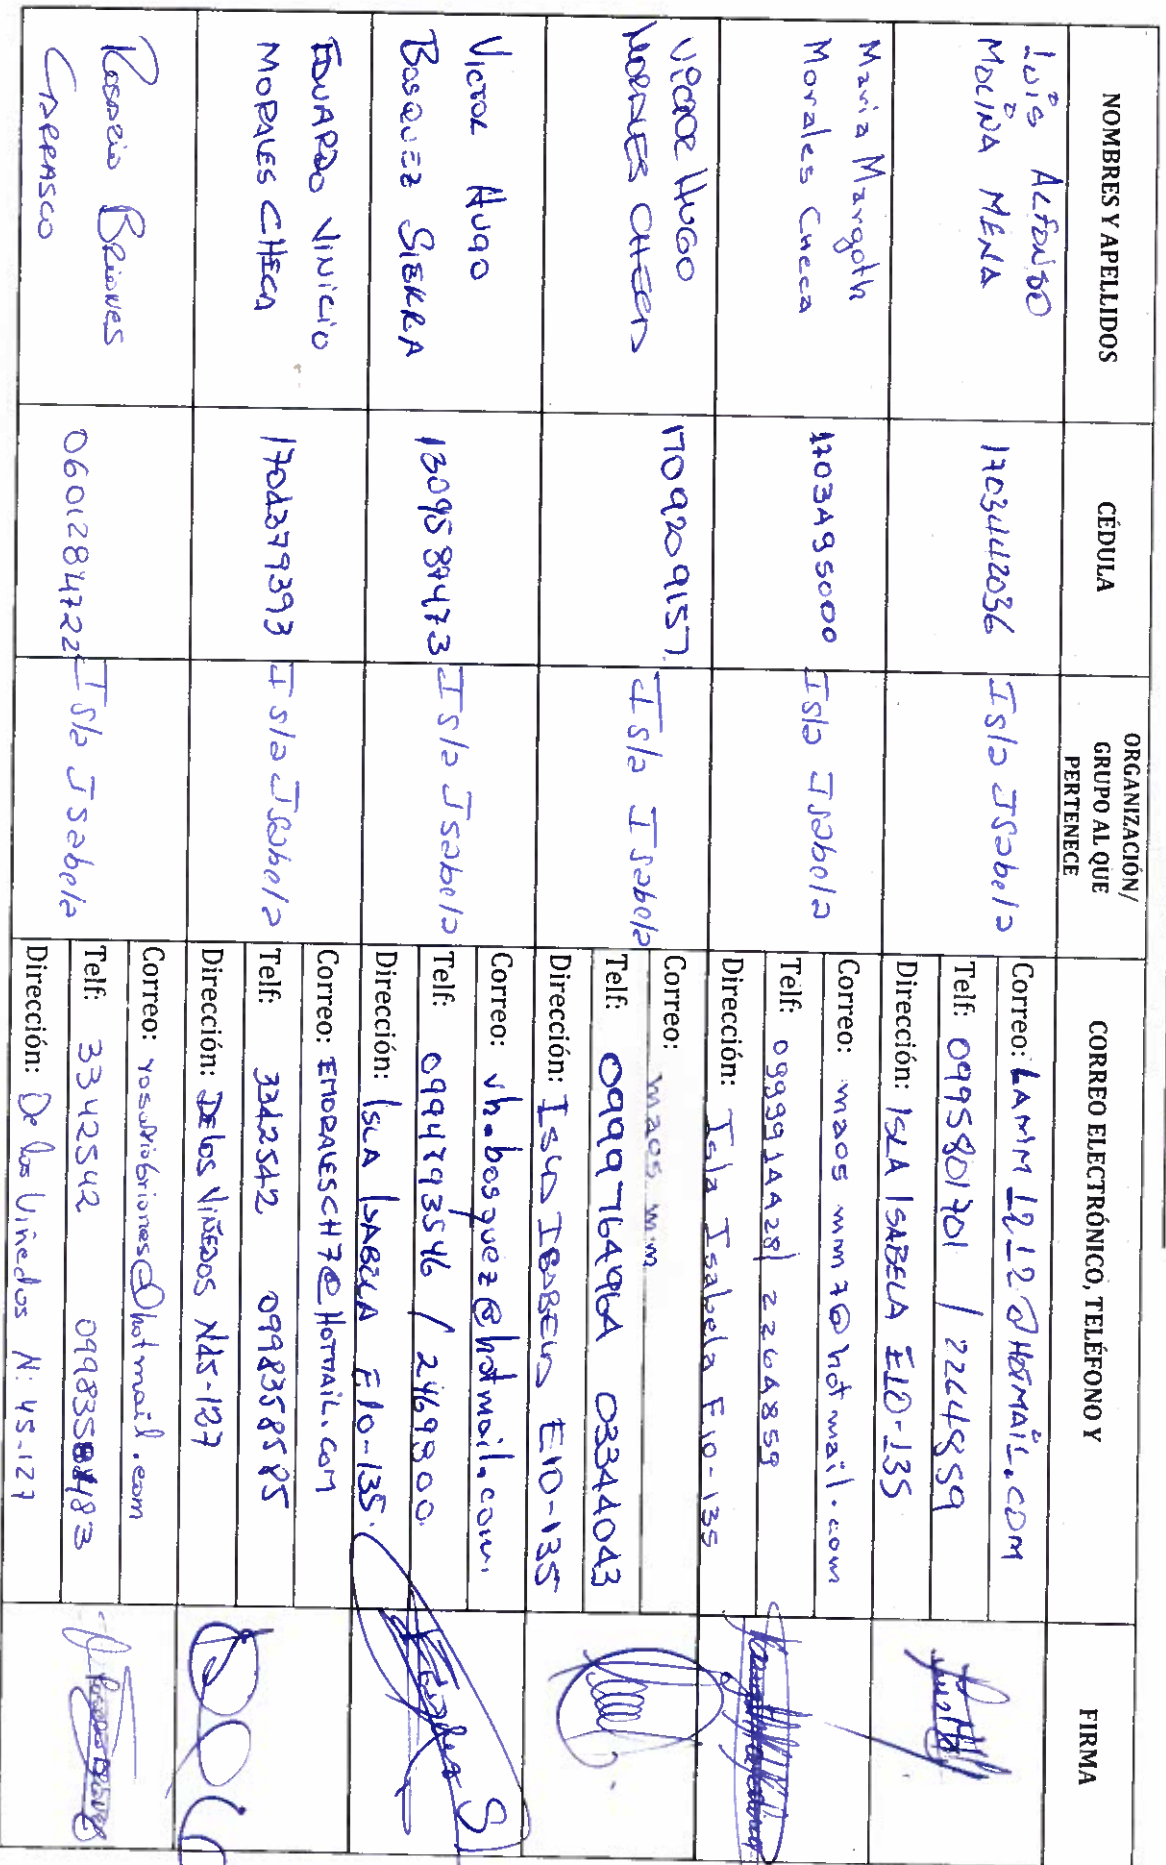 NOMBRES Y APELLIDOS
CÉDULA
ORGANIZACIÓN/
GRUPO AL QUE
PERTENECE
CORREO ELECTRÓNICO, TELÉFONO Y
FIRMA
LUIS ALFONSO
MOLINA MENA
1703442036
Isla Isabela
Correo: LAMM1212@HOTMAIL.COM
Telf: 0995801701 / 2264859
Dirección: ISLA ISABELA E10-135
Maria Margoth
Morales Checa
1703495000
Isla Isabela
Correo: maos mm7@hotmail.com
Telf: 0999914428 2264859
Dirección: Isla Isabela E10-135
VICTOR HUGO
MORALES CHECA
1709209157
Isla Isabela
Correo: maos m.m
Telf: 0999764964 03344043
Dirección: ISLA ISABELA E10-135
VICTOR HUGO
BOSQUEZ SIERRA
1309587473
Isla Isabela
Correo: vh.bosquez@hotmail.com.
Telf: 0994793546 / 2469800.
Dirección: ISLA ISABELA E10-135.
EDUARDO VINICIO
MORALES CHECA
1704379393
Isla Isabela
Correo: EMORALESCH7@HOTMAIL.COM
Telf: 3342542 0998358585
Dirección: DE LOS VIÑEDOS N45-127
Rosario Briones
CARRASCO
0601284722
Isla Isabela
Correo: rosariobriones@hotmail.com
Telf: 3342542
Dirección: De los Viñedos N: 45-127